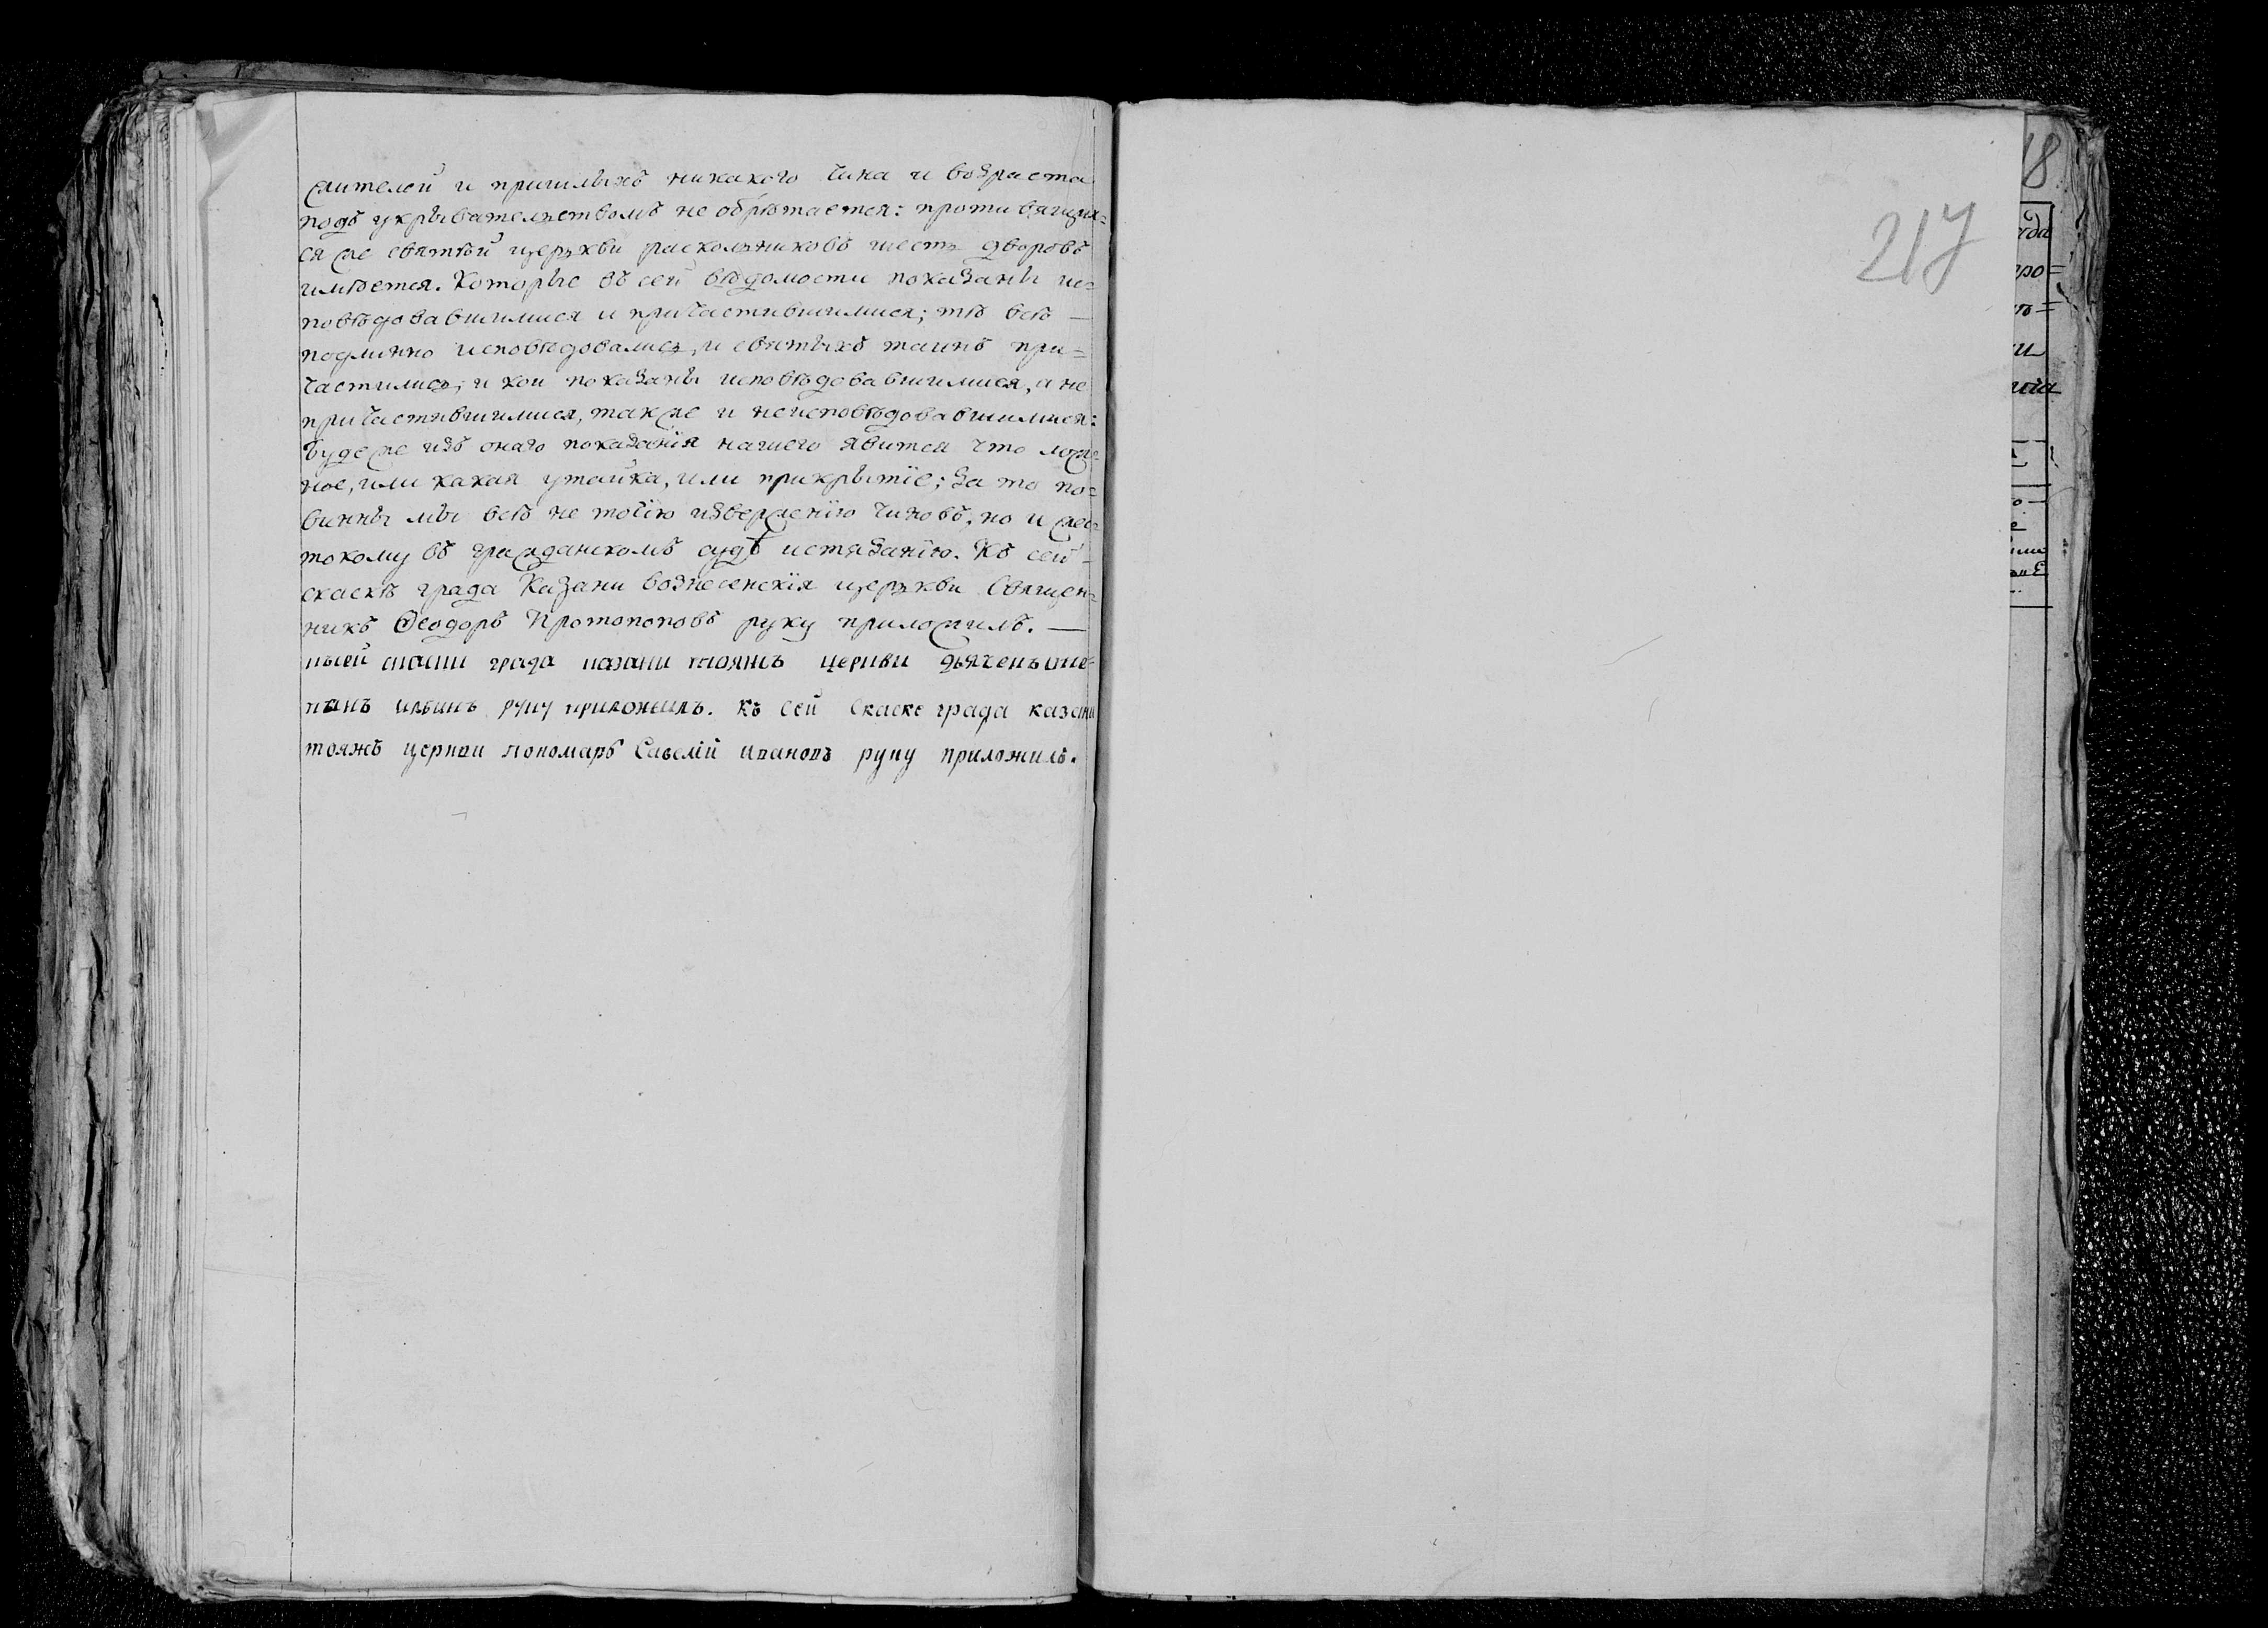 жителей и пришлыхъ никакого чина и возраста
подъ укрывательствомъ не обрѣтается: противящих=
ся же святѣй церькви раскольниковъ шесть дворовъ
имѣется. Которые въ сей вѣдомости показаны ис=
повѣдовавшимися и причастившимися; тѣ всѣ —
подлинно исповѣдовались, и святыхъ таинъ при=
частились, и кои показаны исповѣдовавшимися, а не
причастившимися, такъ же и неисповѣдовавшимися:
буде же изъ онаго показанїя нашего явится что лож=
ное, или какая утайка, или прикрытїе; за то по=
винны мы всѣ не точїю изверженїю чиновъ, но и жес=
токому въ гражданскомъ судѣ истязанїю. Къ сей
скаскѣ града Казани вознесенскїя церькви Священ=
никъ Ѳеодоръ Протопоповъ руку приложилъ. —
къ сей скаски града казани тояжъ церкви дьяченъ сте=
панъ ильинъ руку приложилъ. Къ сей скаске града казани
тояжъ церкви пономарь Савелїй ивановъ руку приложилъ.
217
18